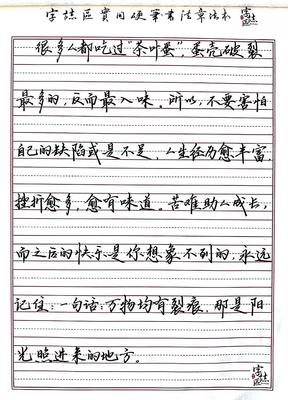 字誌匠實用硬筆書法章法本
很多人都吃过“茶叶蛋”，蛋壳破裂
最多的，反而最入味。所以，不要害怕
自己的缺陷或是不足，人生经历愈丰富，
挫折愈多，愈有味道。苦难助人成长，
而之后的快乐是你想象不到的，永远
记住：一句话：万物均有裂痕，那是阳
光照进来的地方。